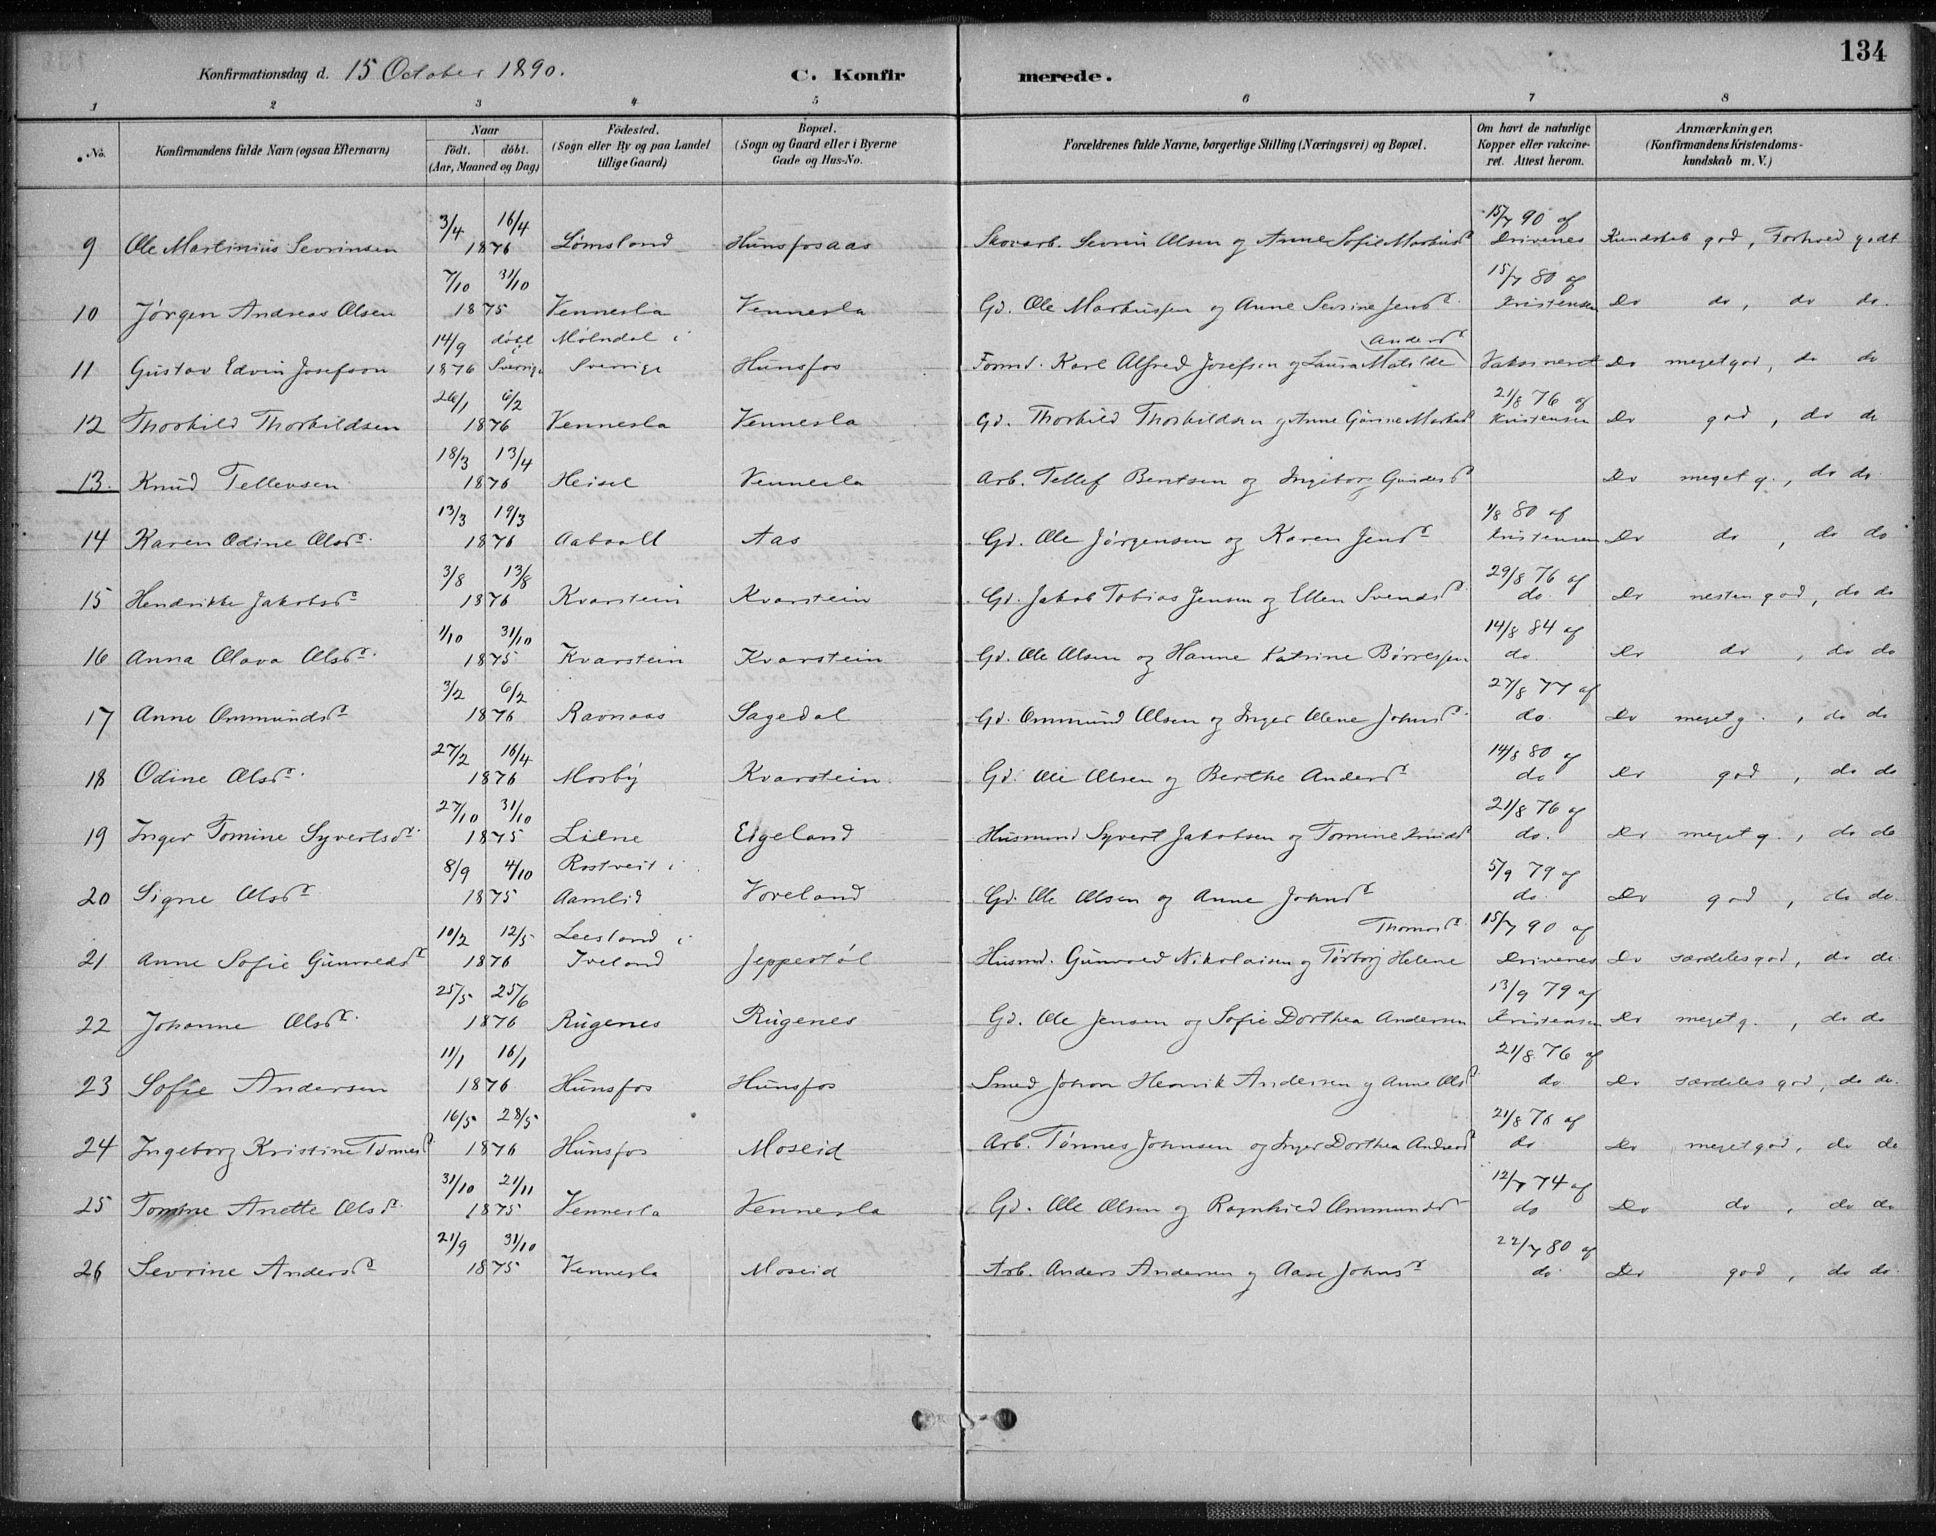 134
Konfirmationsdag d. 15 October 1890. C. Konfirmerede.
1 2 3 4 5 6 7 8
No. Konfirmandens fulde Navn (ogsaa Efternavn) Naar født. døbt. (Aar, Maaned og Dag) Fødested. (Sogn eller By og paa Landet tillige Gaard) Bopæl. (Sogn og Gaard eller i Byerne Gade og Hus-No. Forældrenes fulde Navne, borgerlige Stilling (Næringsvei) og Bopæl. Om havt de naturlige Kopper eller vakcineret. Attest herom. Anmærkninger. (Konfirmandens Kristendomskundskab m. V.)
3/4 16/4 15/7 90 af
9 Ole Martinius Sevrinsen 1876 Lømsland Hunsfosaas Skovarb. Sevrin Olsen og Anne Sofie Markusd Drivenes Kundskab god, Forhold godt
7/10 31/10 15/7 80 af
10 Jørgen Andreas Olsen 1875 Vennesla Vennesla Gd. Ole Markussen og Anne Sevrine Jensd. Kristensen Do do, do do.
14/9 døbt i Mölndal i Andersd
11 Gustav Edvin Josefson 1876 Sverrige Sverrige Hunsfos Formd. Karl Alfred Josefsen og Laura Matilde Vaksineret Do meget god, do do
26/1 6/2 21/8 76 af
12 Thorkild Thorkildsen 1876 Vennesla Vennesla Gd. Thorkild Thorkildsen og Anne Gurine Markusd Kristensen Do god, do do
18/3 13/4
13. Knud Tellevsen 1876 Heisel Vennesla Arb. Tellef Bentsen og Ingeborg Gundersd Do meget g., do do
13/3 19/3 1/8 80 af
14 Karen Odine Olsd. 1876 Aabaalt Aas Gd. Ole Jørgensen og Karen Jensd Kristensen Do do, do do
3/8 13/8 29/8 76 af
15 Hendrikke Jakobsd 1876 Kvarstein Kvarstein Gd. Jakob Tobias Jensen og Ellen Svendsd. do. Do nesten god, do do
1/10 31/10 14/8 84 af
16 Anna Olava Olsd. 1875 Kvarstein Kvarstein Gd. Ole Olsen og Hanne Katrine Børressen do. Do do, do do
3/2 6/2 27/8 77 af
17 Anne Ommundsd 1876 Ravnaas Sagedal Gd. Ommund Olsen og Inger Olene Johnsd. do. Do meget g., do do
27/2 16/4 14/8 80 af
18 Odine Olsd. 1876 Mosby Kvarstein. Gd. Ole Olsen og Berthe Andersd do Do god, do do
27/10 31/10 21/8 76 af
19 Inger Tomine Syvertsd. 1875 Lilne Eigeland Husmand Syvert Jakobsen og Tomine Knudsd do. Do meget g., do do
8/9 4/10 Rostveit i 5/9 79 af
20 Signe Olsd. 1875 Aamlid Voreland Gd. Ole Olsen og Anne Johnsd do. Do god, do do.
10/2 12/5 Leesland i Thomasd. 15/7 90 af
21 Anne Sofie Gunvoldsd 1876 Iveland Jeppestøl Husmd. Gunvold Nikolaisen og Torborg Helene Drivenes Do særdeles god, do do.
25/5 25/6 13/9 79 af
22 Johanne Olsd. 1876 Rugenes Rugenes Gd. Ole Jensen og Sofie Dorthea Andersen Kristensen Do meget g., do do
11/1 16/1 21/8 76 af
23 Sofie Andersen 1876 Hunsfos Hunsfos Smed Johan Henrik Andersen og Anne Olsd do Do særdeles god, do do.
16/5 28/5 21/8 76 af
24 Ingeborg Kristine Tønnesd. 1876 Hunsfos Moseid Arb. Tønnes Johnsen og Inger Dorthea Andersd do Do meget god, do do
31/10 21/11 12/7 74 af
25 Tomine Anette Olsd. 1875 Vennesla Vennesla Gd. Ole Olsen og Ragnhild Ommundsd do Do do, do do
21/9 31/10 22/7 80 af
26 Sevrine Andersd 1875 Vennesla Moseid Arb. Anders Andersen og Aase Johnsd do. Do god, do do.